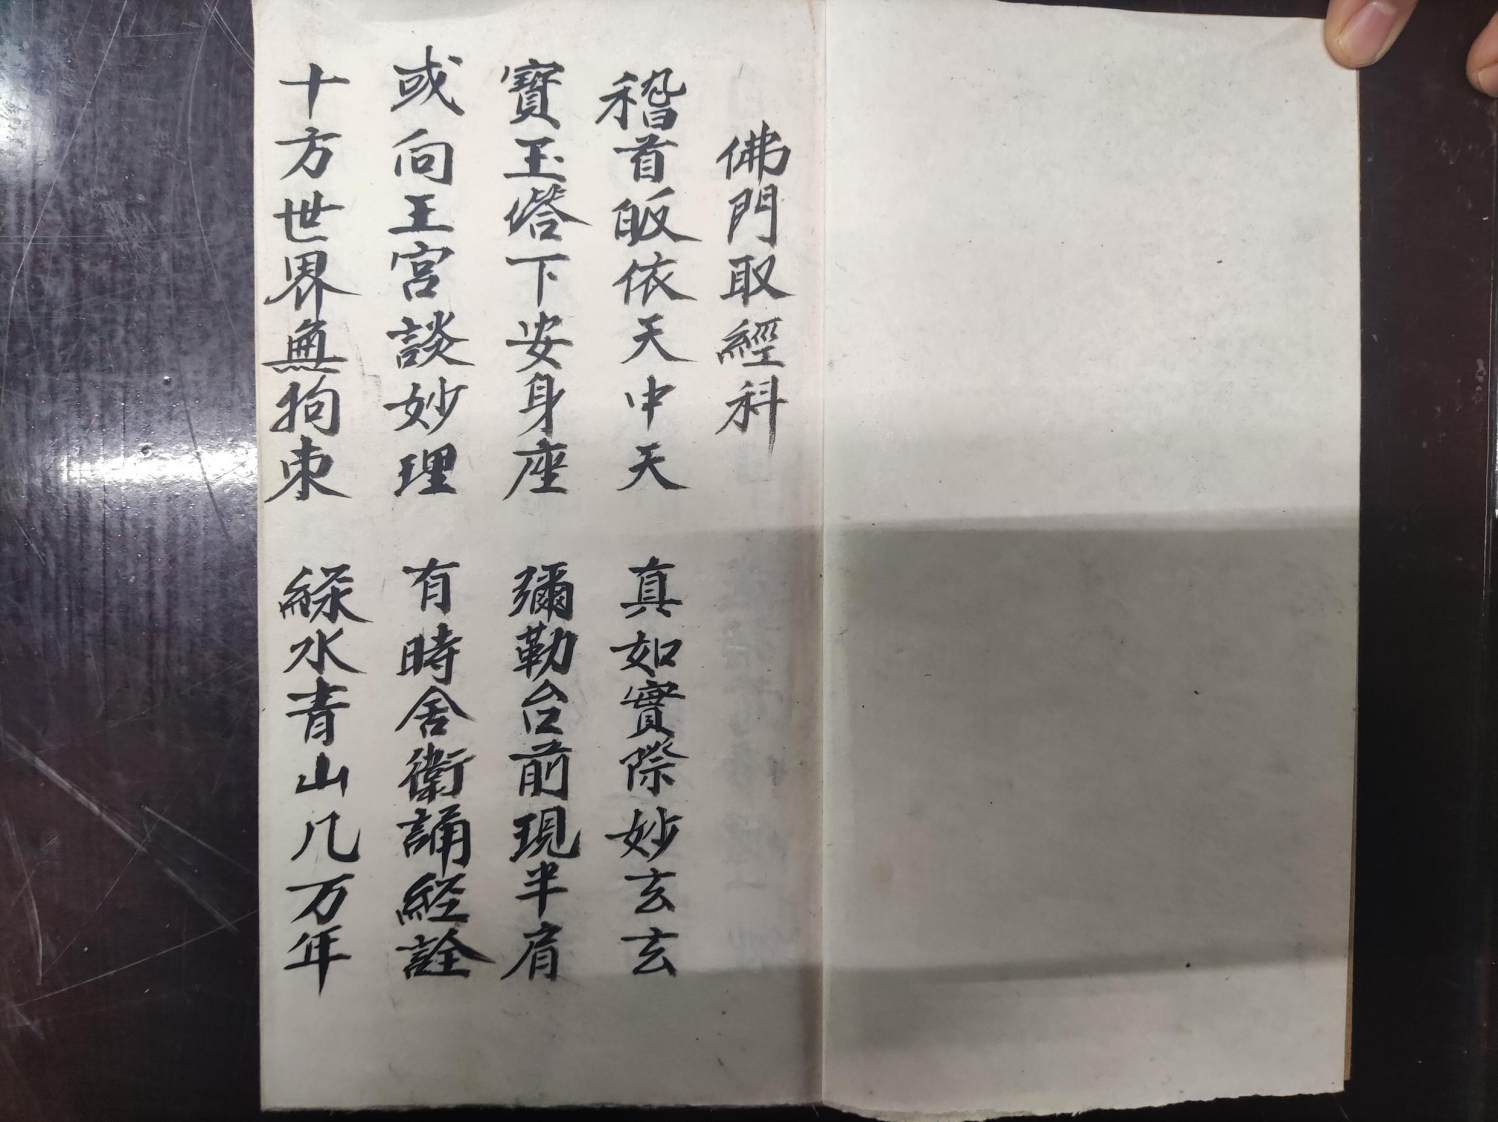 佛門取經科
稽首皈依天中天 真如實際妙玄玄
寶玉塔下安身座 彌勒台前現半肩
或向王宮談妙理 有時舍衛誦經詮
十方世界無拘束 綠水青山几万年